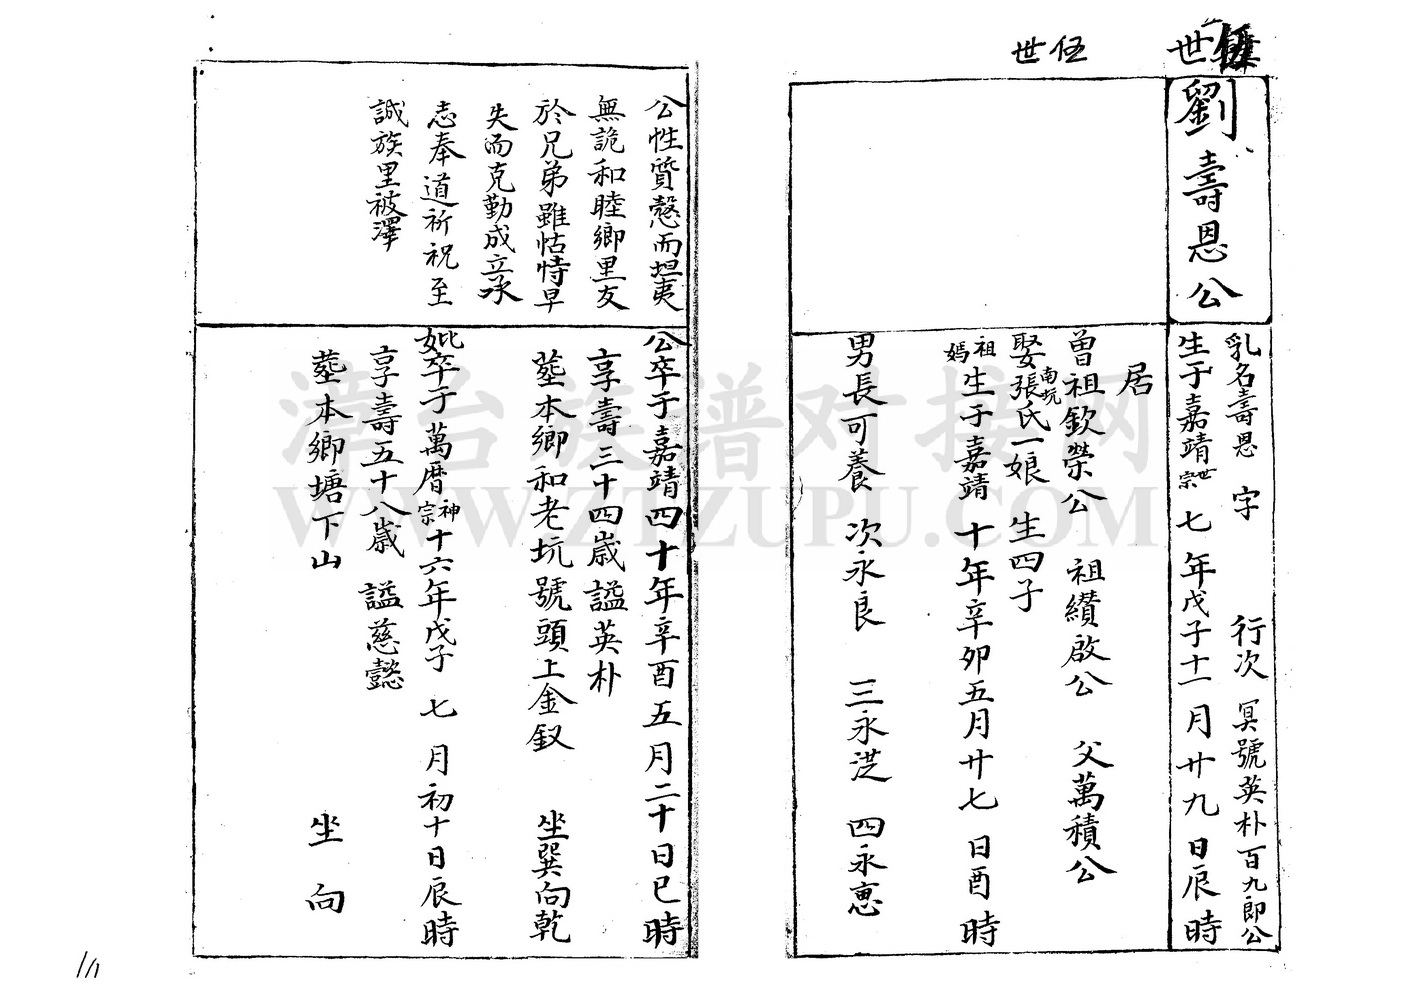 世
伍世
劉壽恩公
乳名壽恩 字 行次 冥號英朴百九郎公
生于嘉靖世宗七年戊子十一月廿九日辰時
居
曾祖欽榮公 祖纘啟公 父萬積公
娶南坑張氏一娘 生四子
祖媽生于嘉靖十年辛卯五月廿七日酉時
男長可養 次永良 三永湜 四永惠
公性質慤而坦夷
無詭和睦鄉里友
於兄弟雖怙恃早
失而克勤成立承
志奉道祈祝至
誠族里被澤
公卒于嘉靖四十年辛酉五月二十日巳時
享壽三十四歲謚英朴
塟本鄉和老坑號頭上金釵 坐巽向乾
妣卒于萬曆神宗十六年戊子七月初十日辰時
享壽五十八歲 謚慈懿
塟本鄉塘下山 坐 向
漳台族谱对接网
WWW.ZTZUPU.COM